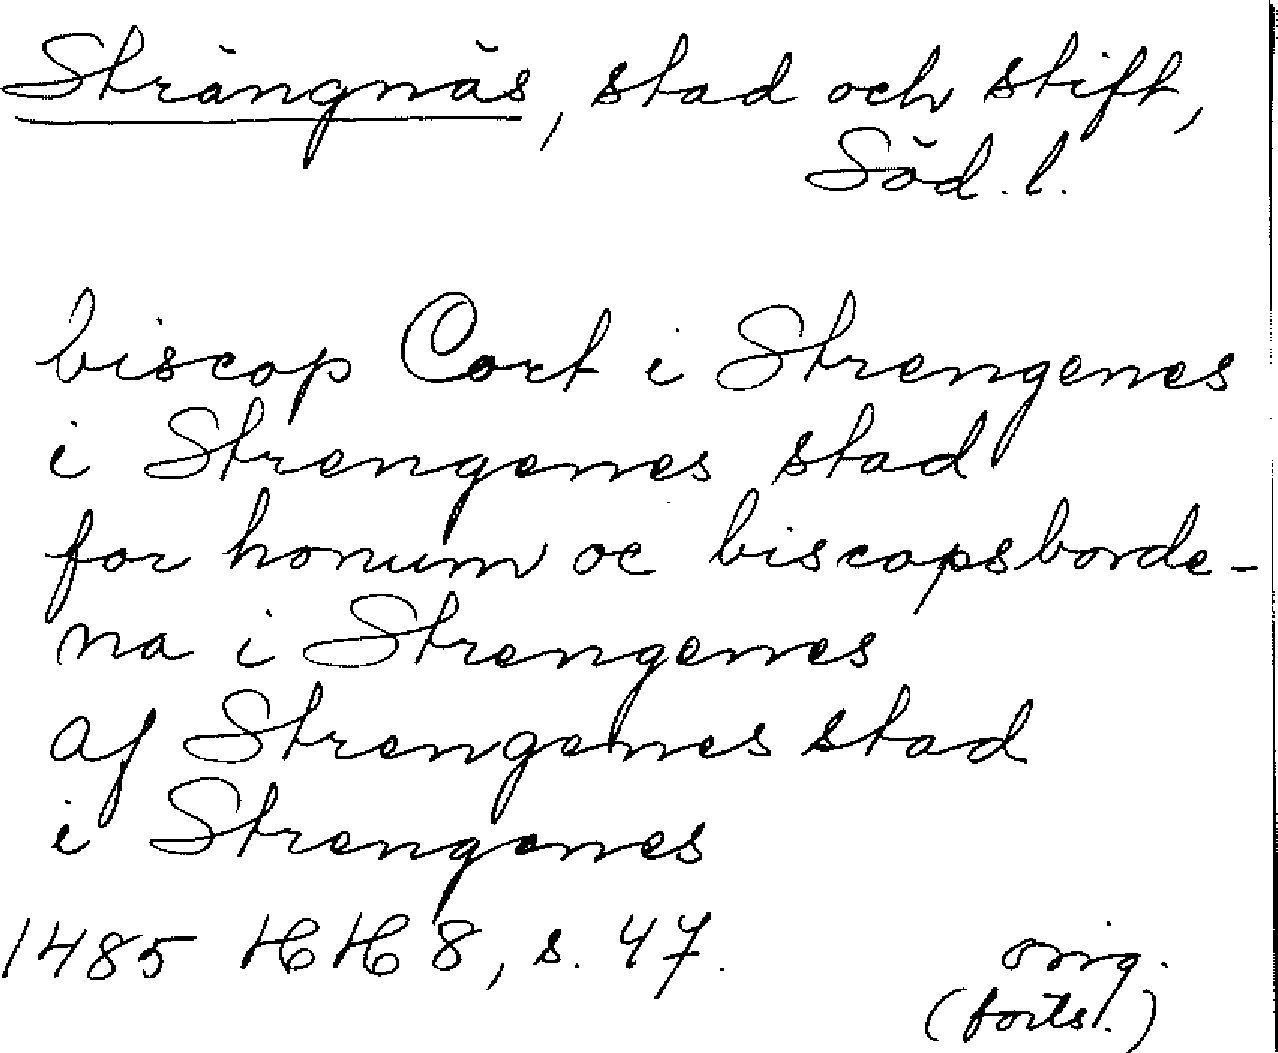 Strängnäs, stad och stift,
Söd. l.
biscop Cort i Strengenes
i Strengenes stad
for honum oc biscopsborde-
na i Strengenes
af Strengenes stad
i Strengenes
1485 HH 8, s. 47.
orig.
(forts.)